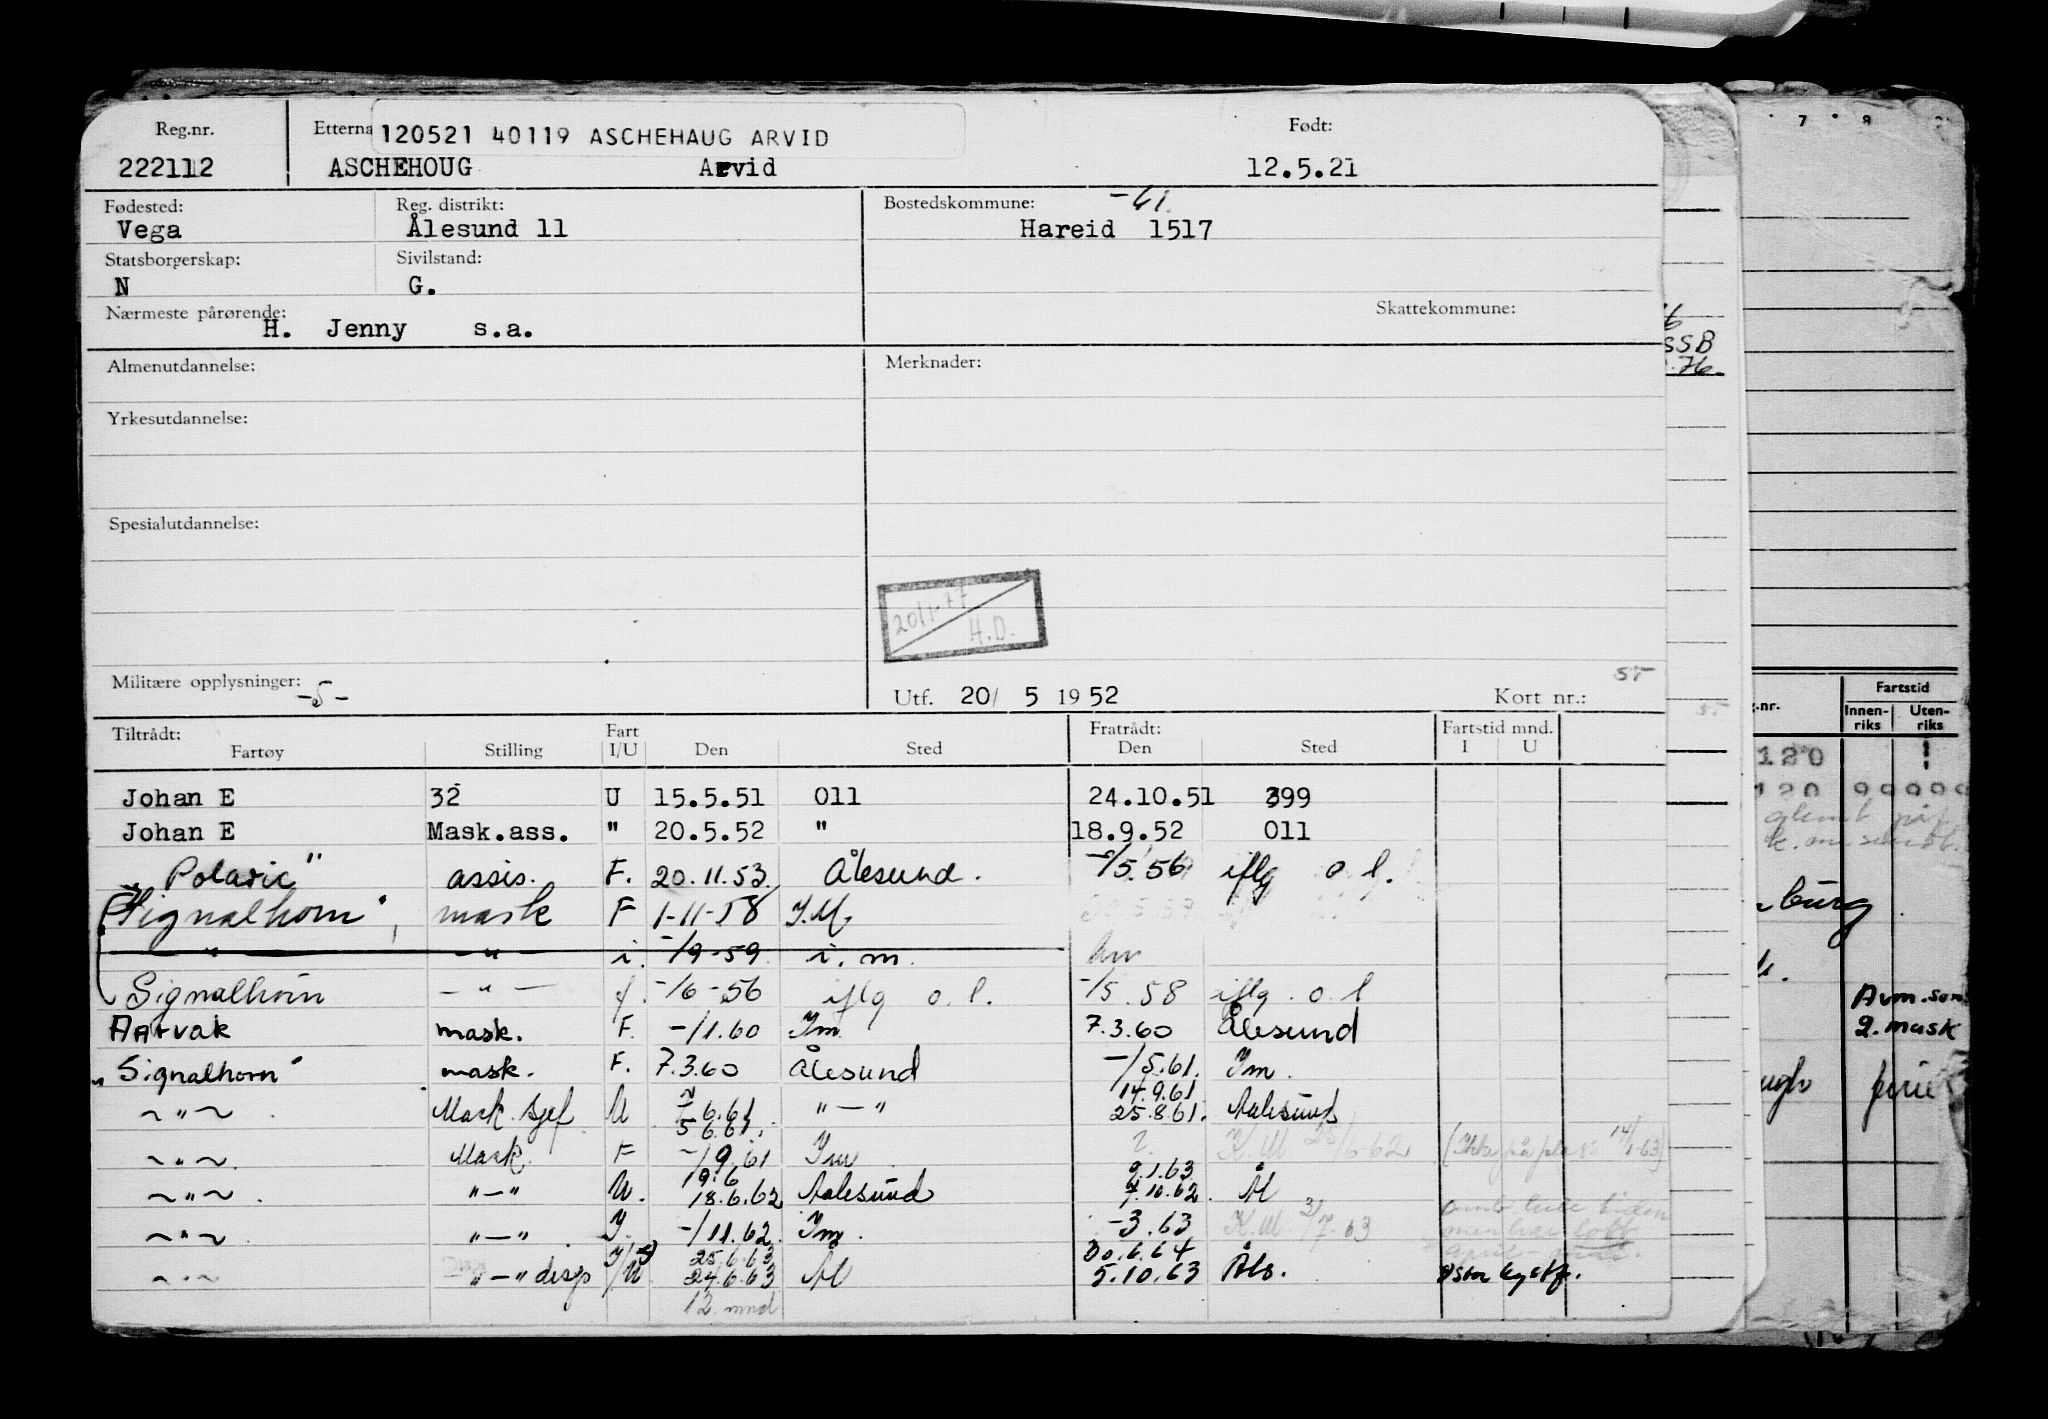 Reg.nr. Etterna 120521 40119 ASCHEHAUG ARVID Født:
222112 ASCHEHOUG Arvid 12.5.21
Fødested: Reg. distrikt: Bostedskommune: -61.
Vega Ålesund 11 Hareid 1517
Statsborgerskap: Sivilstand:
N G.
Nærmeste pårørende: Skattekommune:
H. Jenny s.a.
SSB
.76.
Almenutdannelse: Merknader:
Yrkesutdannelse:
Spesialutdannelse:
20/1-77
H.D.
Militære opplysninger: -5- Utf. 20/ 5 1952 Kort nr.: 55
Tiltrådt: Fart Fratrådt: Fartstid mnd.
Fartøy Stilling I/U Den Sted Den Sted I U
Johan E 32 U 15.5.51 011 24.10.51 399
Johan E Mask.ass. " 20.5.52 " 18.9.52 011
"Polaric" assis. F. 20.11.53. Ålesund. -/5.56 iflg o.l.
"Signalhorn", mask F 1-11-58 I.M.
" -"- i. -/9-59 i.m.
Signalhorn -"- f. -/6-56 iflg o.l. -/5.58 iflg. o.l
Aarvak mask. F. -/1.60 Im 7.3.60 Ålesund
"Signalhorn" mask. F. 7.3.60 Ålesund -/5.61. Im.
14.9.61
~"~. Mask.sjef U 6.61 "-" 25.8.61. Aalesund
5.6.61.
~"~. Mask. F -/9.61 Im. ?. K.M. 25/6.62
19.6 9.1.63
~"~. "-" U. 18.6.62 Aalesund 7.10.62. Ål
~"~. "-" I. -/11.62. Im. -3.63 K.M. 3/7.63
25.6.63 30.6.64
~"~ "-" disp I/U 24.6.63 Ål 5.10.63 Åls. Stor kystf.
12 mnd
7 8
Fartstid
.-nr. Innen-
riks Uten-
riks
120
120 99999
burg
2. mask
ferie